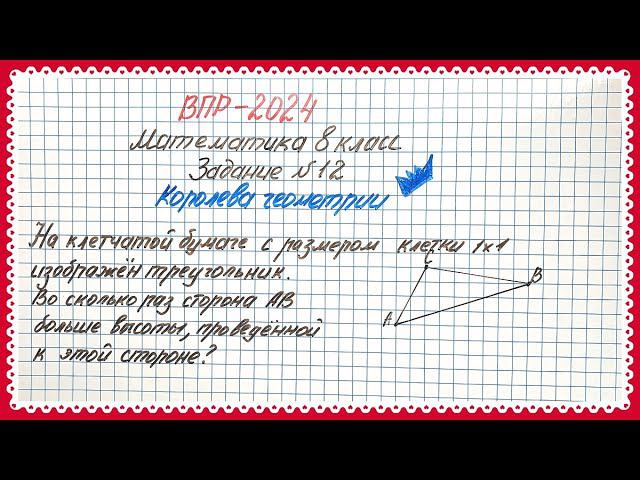 ВПР-2024
Математика 8 класс
Задание №12
Королева геометрии
На клетчатой бумаге с размером клетки 1х1
изображён треугольник.
Во сколько раз сторона АВ
больше высоты, проведённой
к этой стороне?
С
В
А